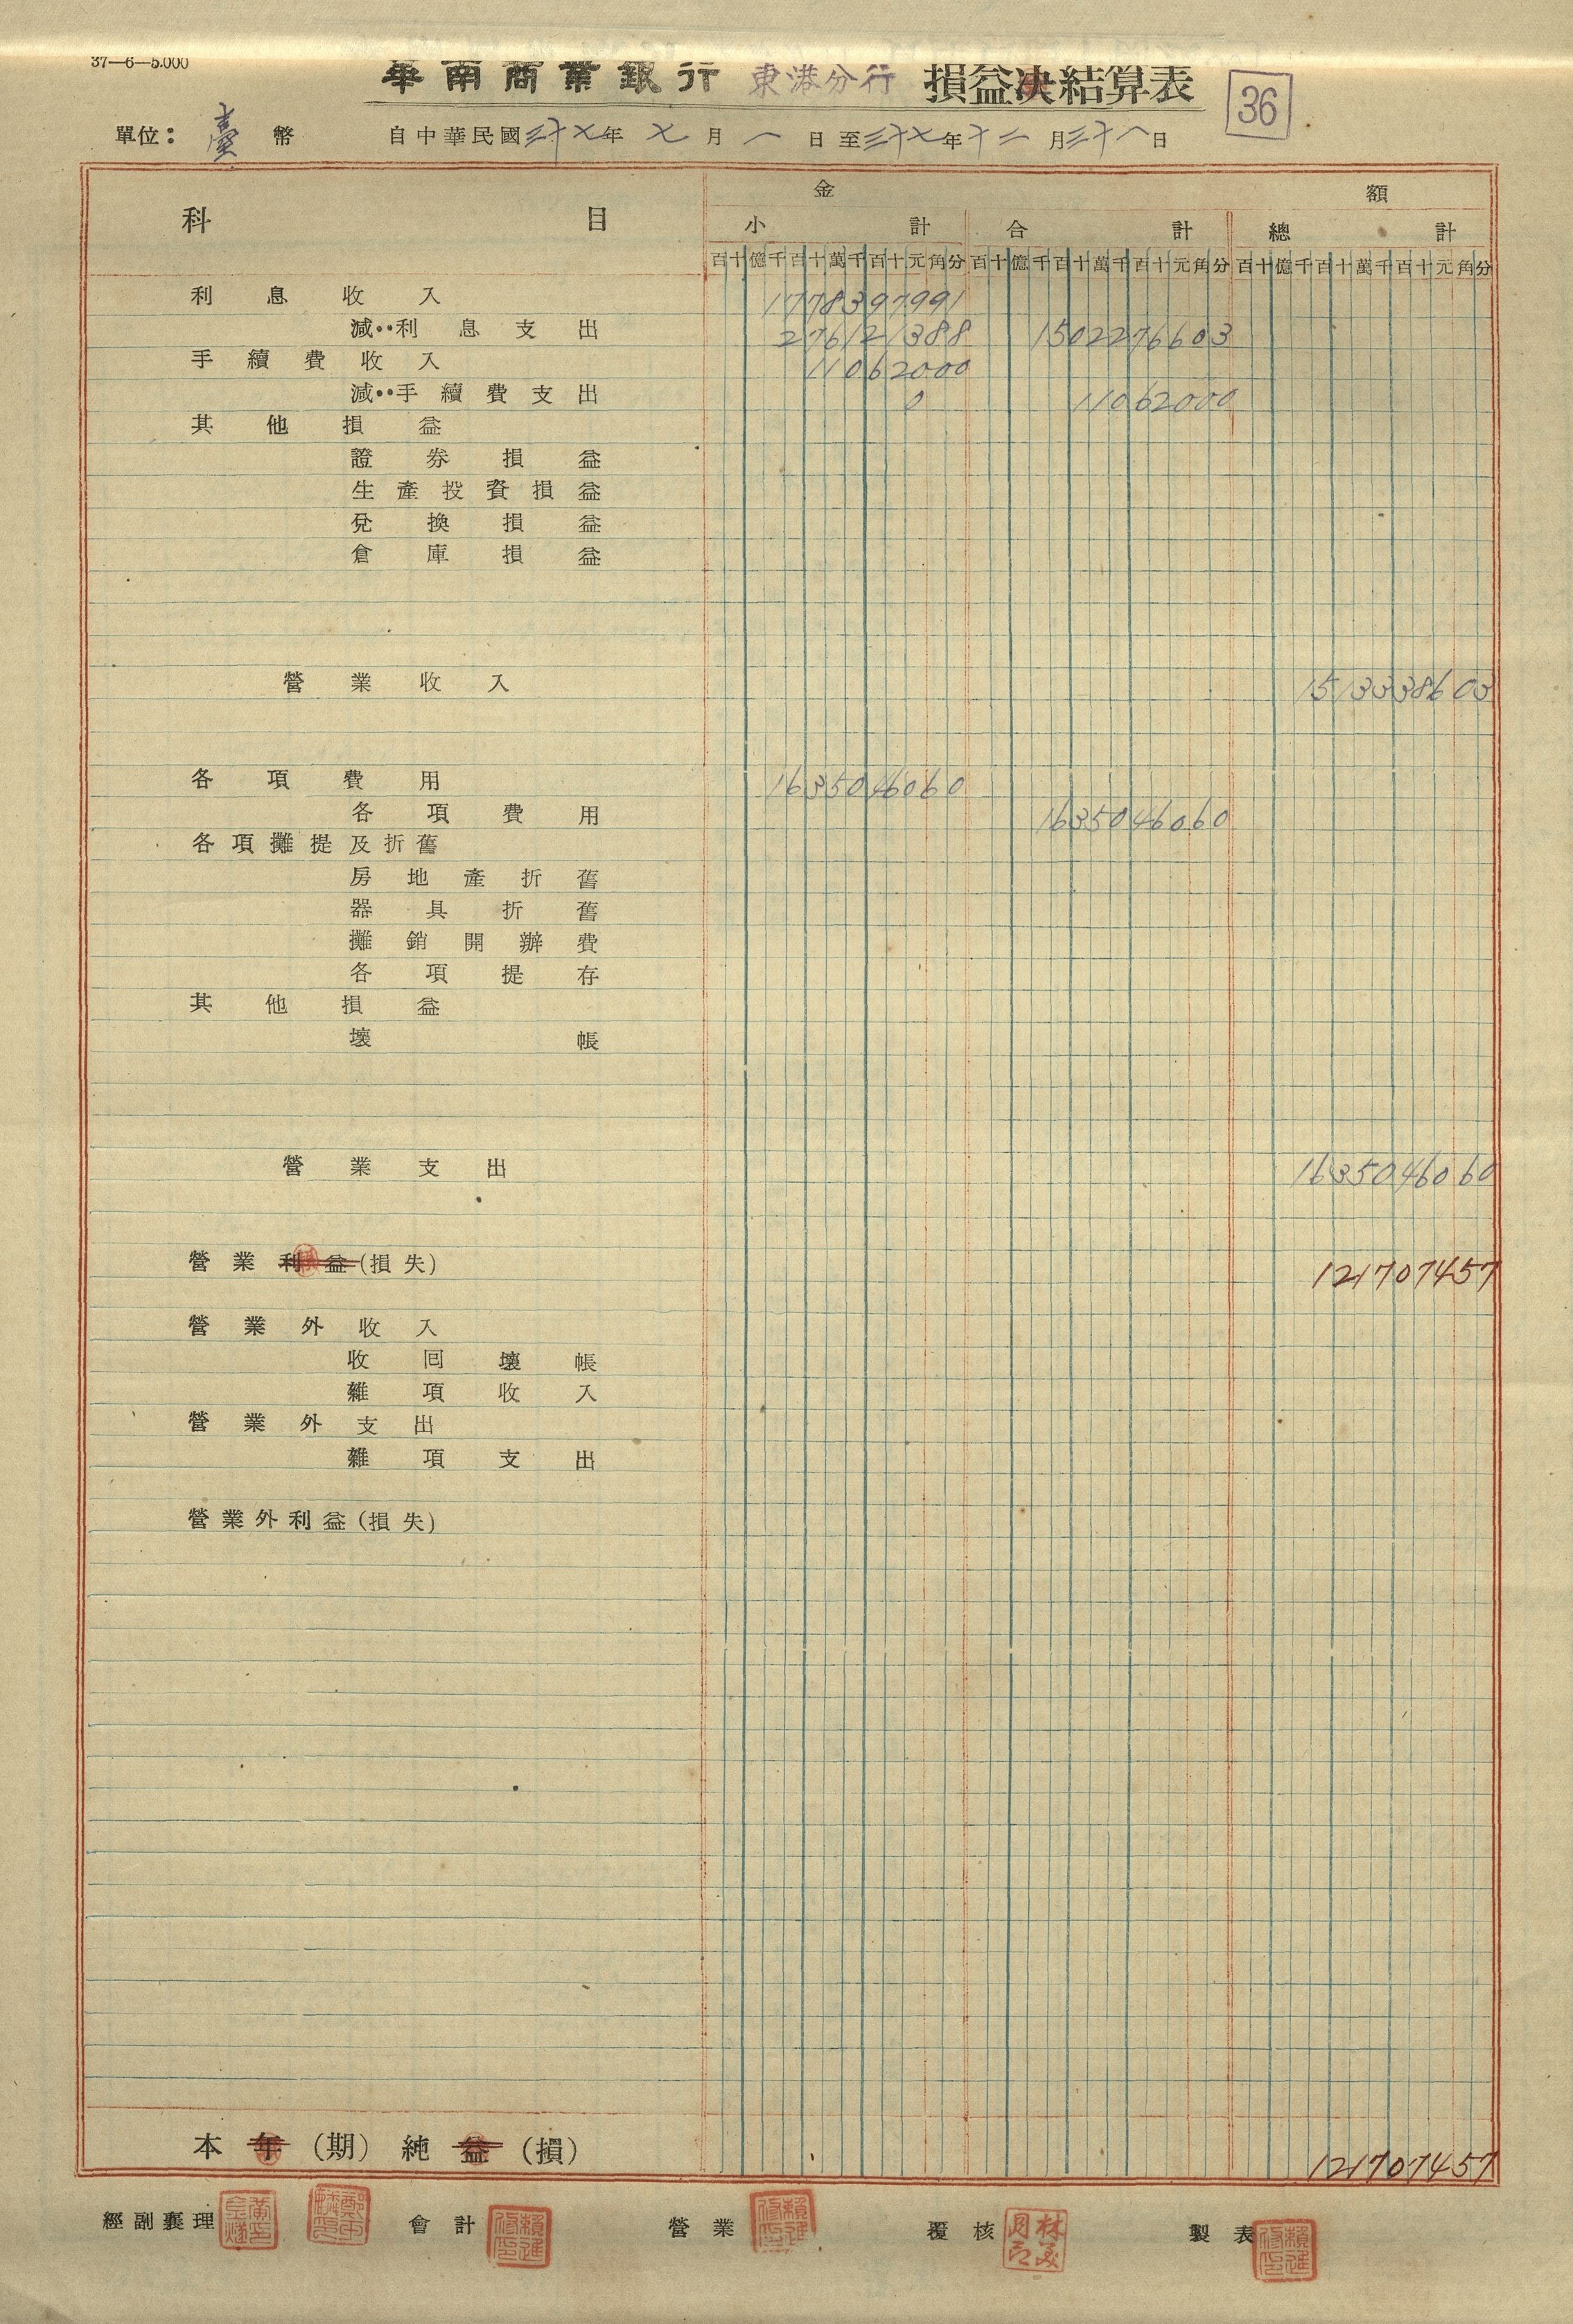 37—6—5.000
華南商業銀行 東港分行 損益決結算表 36
單位：臺幣 自中華民國三十七年七月一日至三十七年十二月三十一日
科目 金額
小計 合計 總計
百十億千百十萬千百十元角分 百十億千百十萬千百十元角分 百十億千百十萬千百十元角分
利息收入 1778397991
減··利息支出 276121388 1502276603
手續費收入 11062000
減··手續費支出 0 11062000
其他損益
證券損益
生產投資損益
兌換損益
倉庫損益
營業收入 1513338603
各項費用 1635046060
各項費用 1635046060
各項攤提及折舊
房地產折舊
器具折舊
攤銷開辦費
各項提存
其他損益
壞帳
營業支出 1635046060
營業利益(損失) 121707457
營業外收入
收回壞帳
雜項收入
營業外支出
雜項支出
營業外利益(損失)
本年(期)純益(損) 121707457
經副襄理 會計 營業 覆核 製表